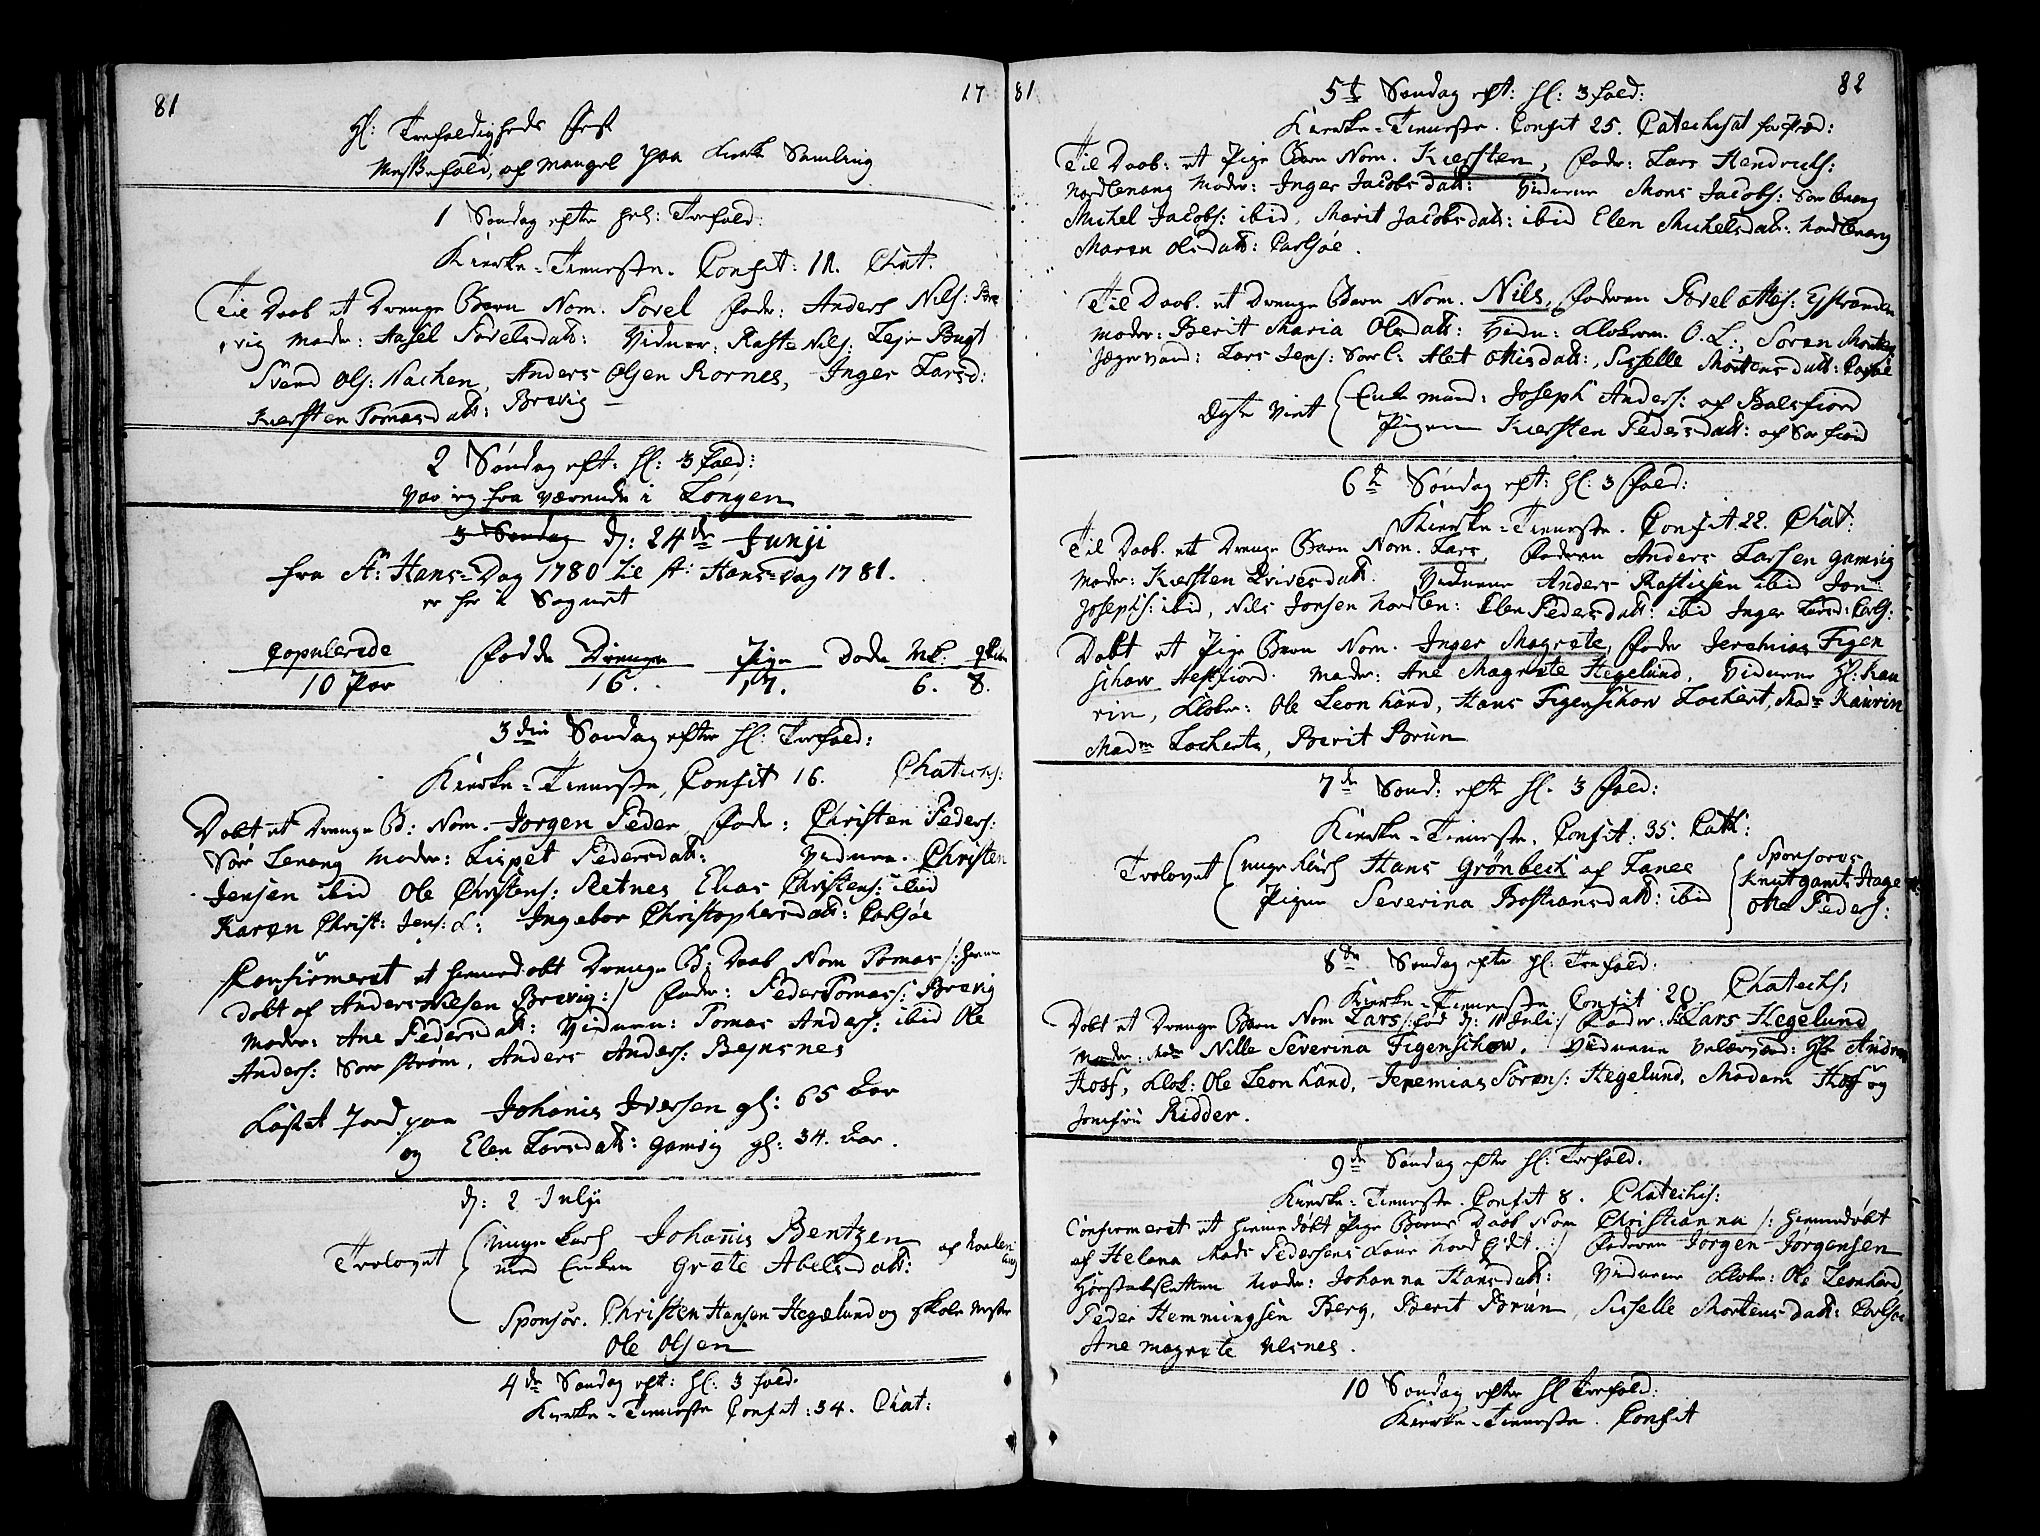 81
17
Hl: Trefoldigheds Fest
Messefald, af Mangel paa Kirke Samling
1 Søndag efter hel: Trefold:
Kirke-Tieneste. Confit: 18. Chat.
Til Daab et Drenge Barn Nom. Povel Fader: Anders Nils: Bre
vig Moder: Aasel Povelsdatt: Vidner: Raste Nils:
Svend Ols: Nachen, Anders Olsen Kornes, Inger Larsd:
Kiersten Tomasdatt: Brevig
2 Søndag eft: hl: 3 fold:
var ieg fra værende i Longen
3 Søndag d: 24de Junji
fra St: Hans-Dag 1780 til St: Hans-Dag 1781.
er her i Sognet
Copulerede Fødde Drenge Pige Døde Mk: qvin
10 Par 16. 17. 6. 8.
3die Søndag efter hl: Trefold:
Kirke-Tieneste, Confit 16. Chatechs:
Døbt et Drenge B: Nom. Jorgen Peder Fader: Christen Peders:
Sør Lenang Moder: Lispet Pedersdatt: Vidnere. Christen
Jensen ibid Ole Christens: Retnes Elias Christens: ibid
Karen Christ: Jens: L: Ingebor Christophersdatt: Carlsøe
Confirmeret et hiemmedøbt Drenge B: Daab Nom Tomas /: hiemme
døbt af Anders Nilsen Brevig :/ Fader: Peder Tomass: Brevig
Moder: Ane Pedersdatt: Vidnere: Tomas Anders: ibid Ole
Anders: Sørstrøm, Anders Anders: Bejnsnes
Kastet Jord paa Johanis Iversen gl: 65 Aar
og Elen Larsdatt: Gamvig gl: 34. Aar.
d: 2 Julji
Trolovet unge Karl Johanis Bentzen
med Enken Grete Abelsdatt:
Sponsor. Christen Hansen Hegelund og Skole Mester
Ole Olsen
4de Søndag eft: hl: 3 fold.
Kirke-Tieneste Confit: 34. Chat:
81
82
5te Søndag eft: hl: 3 fold:
Kirke-Tieneste. Confit 25. Catechisat
Til Daab: et Pige Barn Nom. Kiersten, Fader: Lars Hendrichs:
Nordlenang Moder: Inger Jacobsdatt: Vidnere Mons Jacobs: Sørlenang
Michel Jacobs: ibid, Marit Jacobsdatt: ibid Elen Michelsdatt: Nordlenang
Maren Olsdatt: Carlsøe.
Til Daab. et Drenge Barn Nom. Nils, Faderen Povel
Moder: Berit Maria Olsdatt: Vidn: Klokeren O. L:, Soren Morten
Jægervand: Lars Jens: Sørl: Alet Ottisdatt:, Sisselle Mortensdatt: Carlsøe
Enke mand: Joseph Anders: af Balsfiord
Pigen Kiersten Pedersdatt: af Sørfiord
6te Søndag eft: hl: 3 fold:
Kirke-Tieneste. Confit 22. Chat:
Til Daab. et Drenge Barn Nom. Lars, Faderen Anders Larsen Gamvig
Moder: Kiersten Iversdatt. Vidnere Anders Rastissen ibid Jon
Josephs: ibid, Nils Jonsen Nordlen: Elen Pedersdatt: ibid Inger Larsd: Carls:
Døbt et Pige Barn Nom. Inger Magrete, Fader Jeremias Figen
schow Helfiord. Moder: Ane Magrete Hegelund, Vidnere Hr: Kau
rin, Kloker: Ole Leonhard, Hans Figenschow Lockert, Madm Kaurin
Madm Lockerts, Berit Brun
7de Sønd: efter hl. 3 Fold:
Kirke-Tieneste. Confit: 35. Cath:
Trolovet unge Karl Hans Grønbech af Fanee
Pigen Severina Bastiansdatt: ibid
Sponsores
Knut Hage
Ole Peders:
8de Søndag efter hl: Trefold:
Kirke-Tieneste Confit 20. Chatechs:
Døbt et Drenge Barn Nom Lars /: fød d: 11 Juli :/ Fader: Lars Hegelund
Moder: Nille Severina Figenschow. Vidnere Velærværd: Hr Andreas
Hoff, Klok: Ole Leonhard, Jeremias Sorens: Hegelund, Madam Hoff og
Jomfru Ridder.
9de Søndag efter hl: Trefold.
Kirke-Tieneste. Confit 8. Chatechis:
Confirmeret et hiemmedøbt Pige Barns Daab Nom Christianna /: hiemmedøbt
af Helena Mads Pedersens Kone Nord :/ Faderen Jorgen Jorgensen
Moder: Johanna Hansdatt: Vidnere Kloker: Ole Leonhard
Peder Hemmingsen Berg, Berit Brun, Sisselle Mortensdatt: Carlsøe
Ane Magrete Ulsnes.
10 Søndag efter hl Trefold:
Kirke-Tieneste. Confit